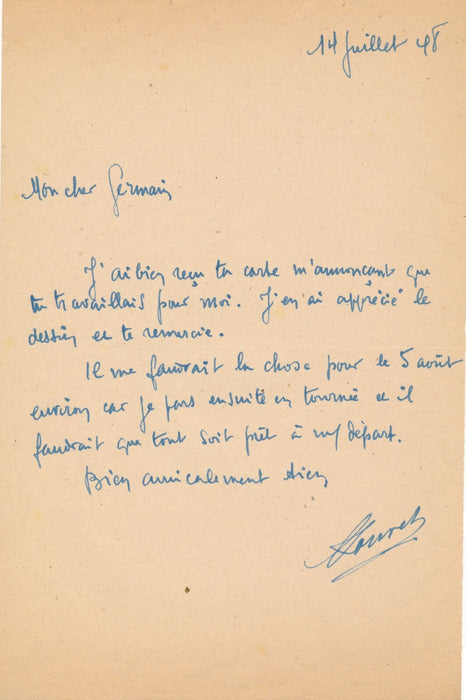 14 juillet 48
Mon cher Germain
J'ai bien reçu ta carte m'annonçant que
tu travaillais pour moi. J'en ai apprécié le
dessin et te remercie.
Il me faudrait la chose pour le 5 août
environ car je pars ensuite en tournée et il
faudrait que tout soit prêt à m/ départ.
Bien amicalement tien